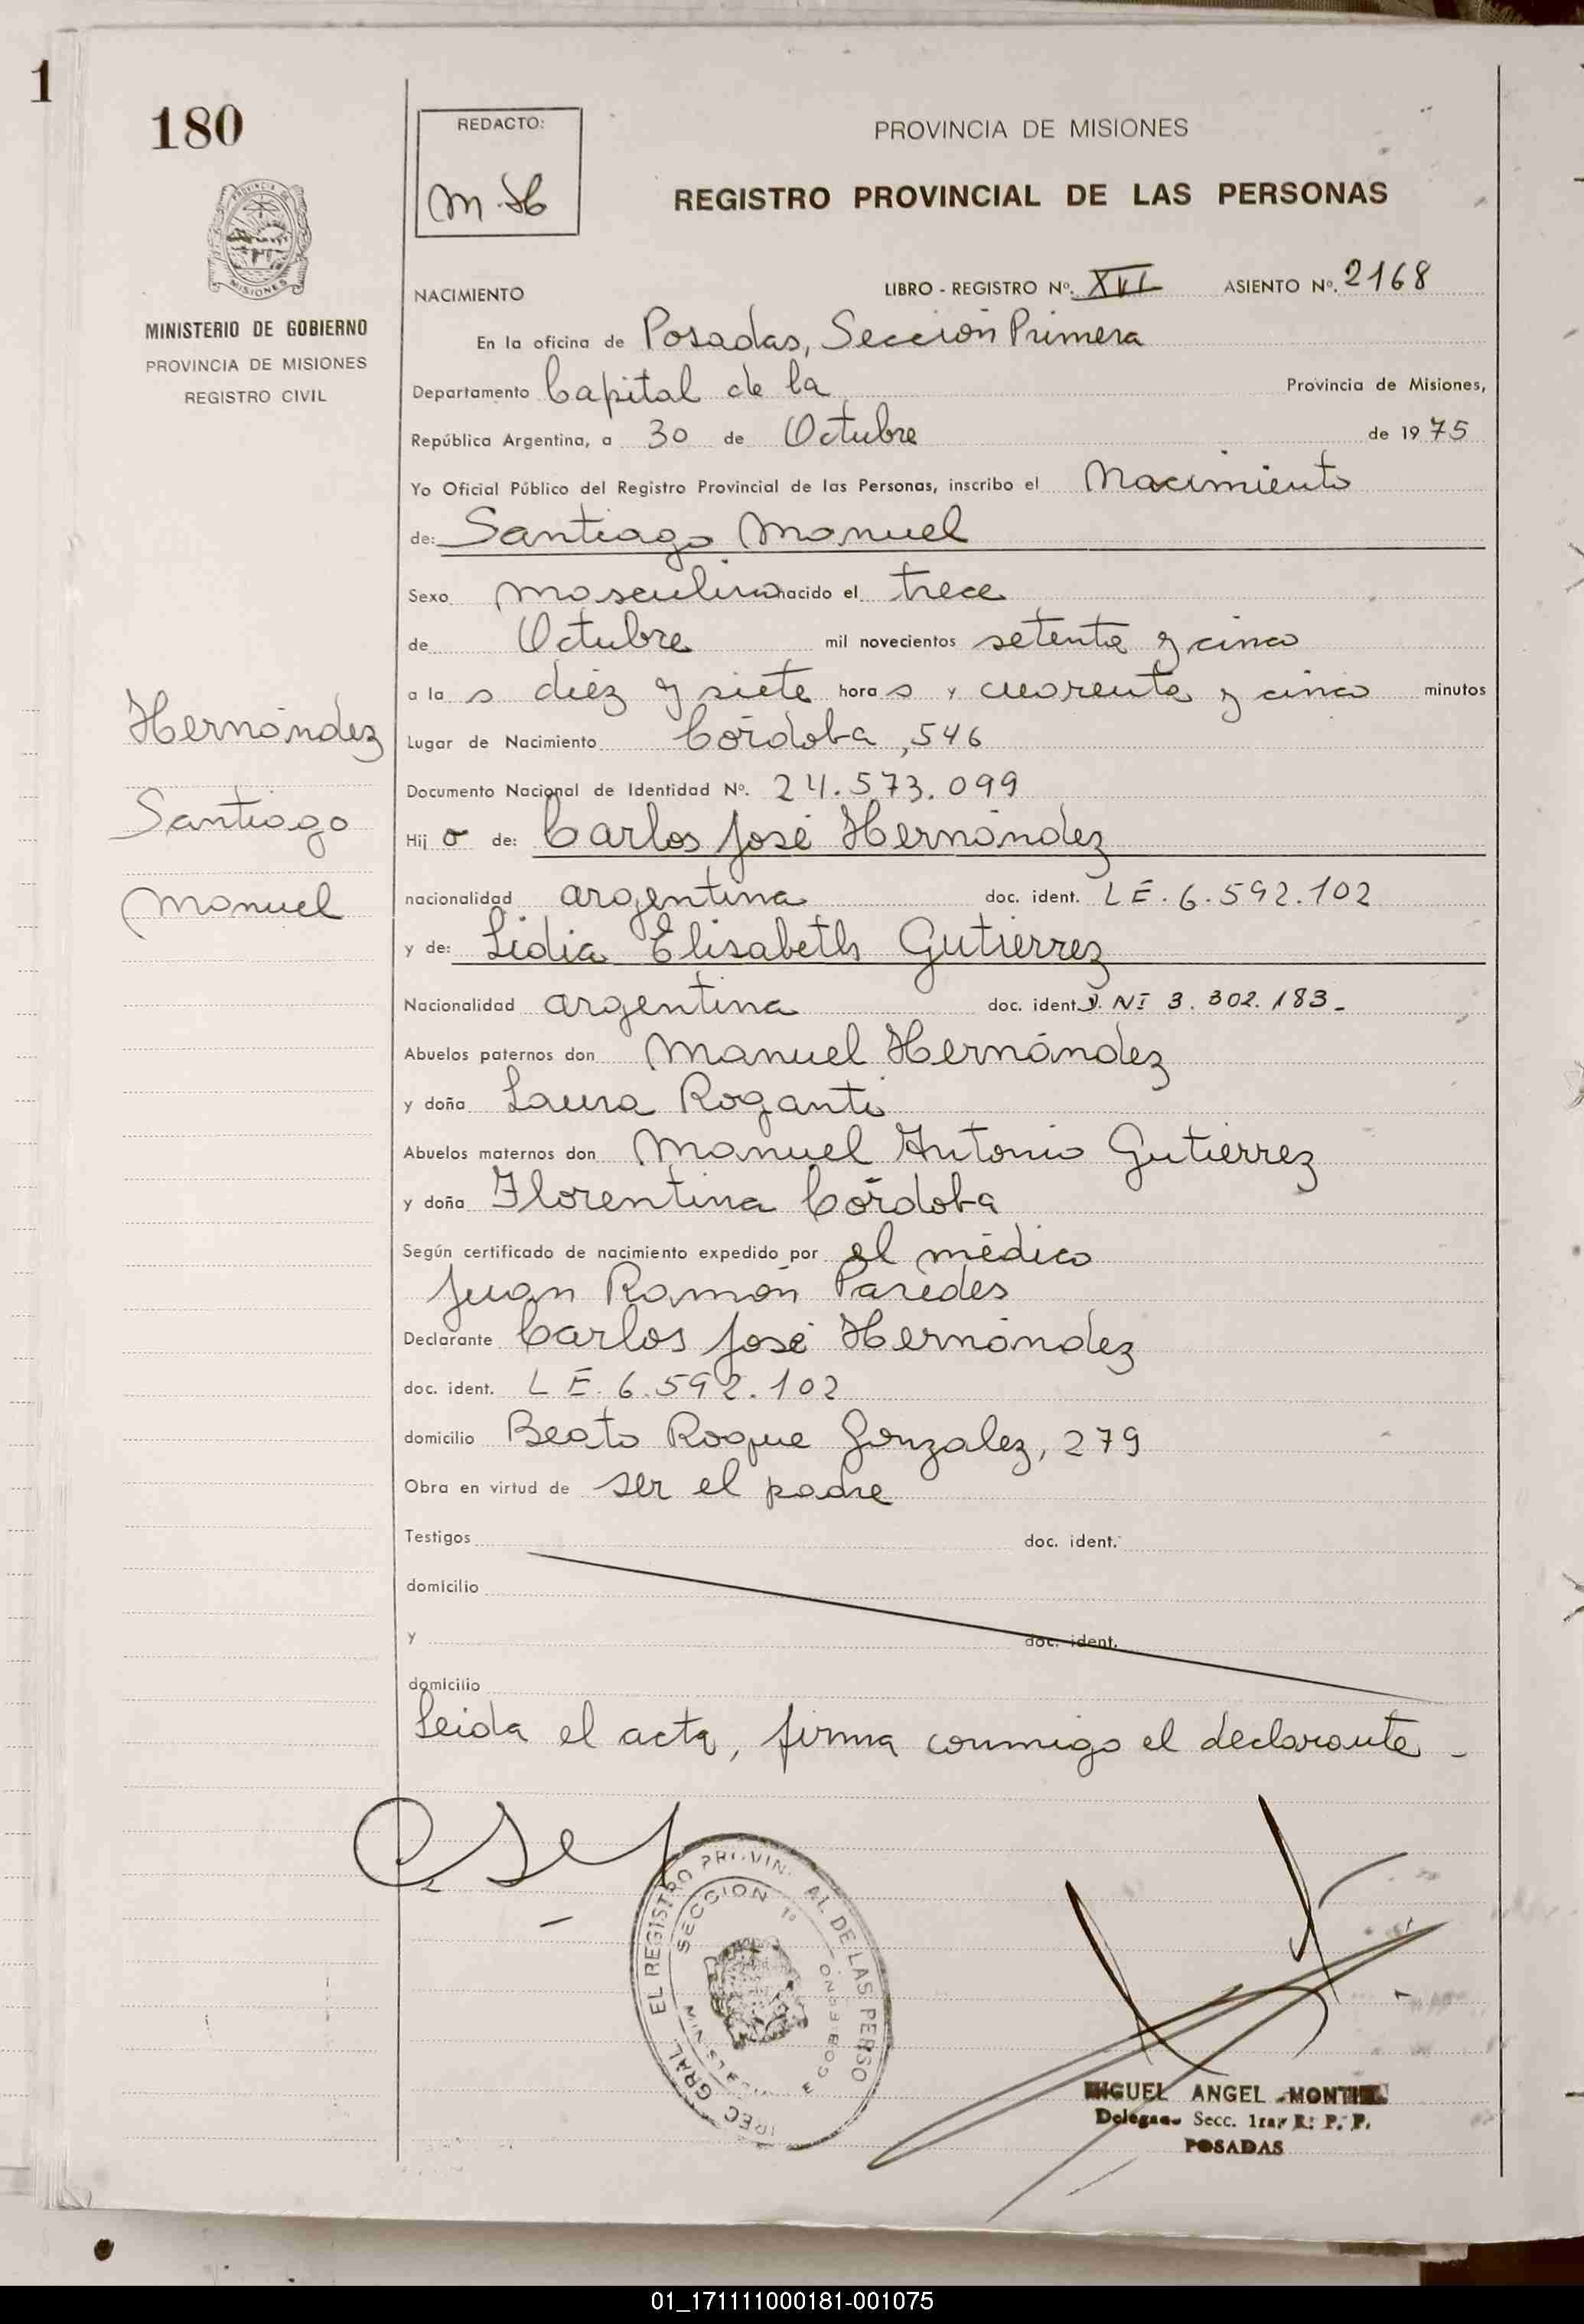 1
180
PROVINCIA DE MISIONES
MINISTERIO DE GOBIERNO
PROVINCIA DE MISIONES
REGISTRO CIVIL
Hernández
Santiago
Manuel
REDACTO:
M.H
PROVINCIA DE MISIONES
REGISTRO PROVINCIAL DE LAS PERSONAS
NACIMIENTO LIBRO - REGISTRO Nº. XVI ASIENTO Nº. 2168
En la oficina de Posadas, Sección Primera
Departamento Capital de la Provincia de Misiones,
República Argentina, a 30 de Octubre de 1975
Yo Oficial Público del Registro Provincial de las Personas, inscribo el Nacimiento
de: Santiago Manuel
Sexo masculino nacido el trece
de Octubre mil novecientos setenta y cinco
a la s diez y siete hora s y cuarenta y cinco minutos
Lugar de Nacimiento Córdoba, 546
Documento Nacional de Identidad Nº. 24.573.099
Hij o de: Carlos José Hernández
nacionalidad argentina doc. ident. LE. 6.592.102
y de: Lidia Elisabeth Gutiérrez
Nacionalidad argentina doc. ident. D.NI 3.302.183-
Abuelos paternos don Manuel Hernández
y doña Laura Roganti
Abuelos maternos don Manuel Antonio Gutiérrez
y doña Florentina Córdoba
Según certificado de nacimiento expedido por el médico
Juan Ramón Paredes
Declarante Carlos José Hernández
doc. ident. LE. 6.592.102
domicilio Beato Roque González, 279
Obra en virtud de ser el padre
Testigos doc. ident.
domicilio
y doc. ident.
domicilio
Leida el acta, firma conmigo el declarante -
SECCION 1º
MIGUEL ANGEL
Secc. 1ra. R. P. P.
POSADAS
01_171111000181-001075